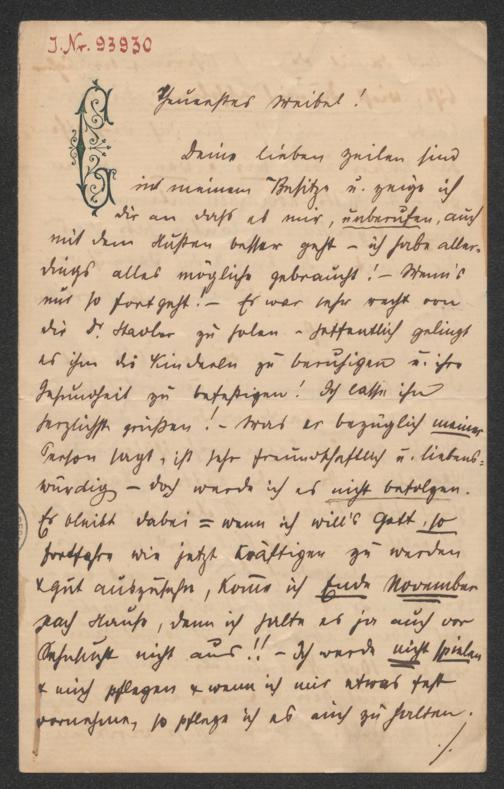 J. Nr. 93930
Theuerstes Weibel!
Deine lieben Zeilen sind
in meinem Besitze u. zeige ich
dir an daß es mir, unberufen, auch
mit dem Husten besser geht – ich habe aller-
dings alles mögliche gebraucht! – Wenn's
nur so fortgeht! – Es war sehr recht von
dir Dr. Stadler zu holen – hoffentlich gelingt
es ihm die Kinderln zu beruhigen u. ihre
Gesundheit zu befestigen! Ich lasse ihn
herzlichst grüßen! – Was er bezüglich meiner
Person sagt, ist sehr freundschaftlich u. liebens=
würdig – doch werde ich es nicht befolgen.
Es bleibt dabei = wenn ich will's Gott, so
fortfahre wie jetzt kräftiger zu werden
& gut auszusehn, komme ich Ende November
nach Hause, denn ich halte es ja auch vor
Sehnsucht nicht aus!! – Ich werde nicht spielen
& mich pflegen & wenn ich mir etwas fest
vornehme, so pflege ich es auch zu halten.
./.